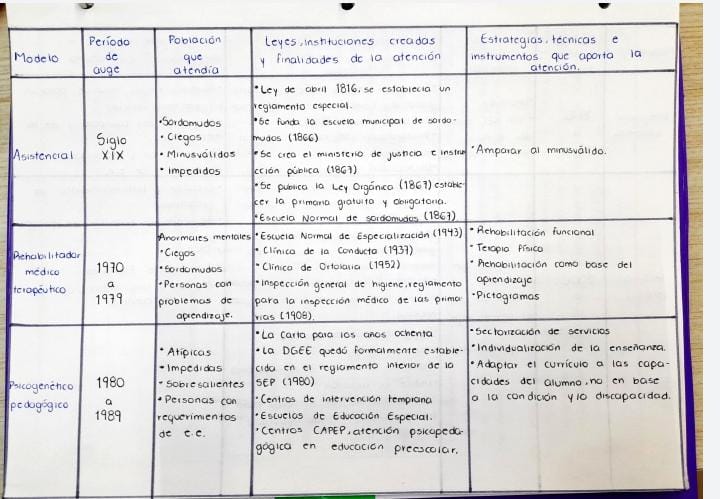 Modelo
Período
de
auge
Población
que
atendía
Leyes, instituciones creadas
y finalidades de la atención
Estrategias, técnicas e
instrumentos que aporta la
atención.
Asistencial
Siglo
XIX
•Sordomudos
• Ciegos
• Minusválidos
• Impedidos
•Ley de abril 1816, se establecía un
reglamento especial.
•Se funda la escuela municipal de sordo-
mudos (1866)
•Se crea el ministerio de justicia e instru
cción pública (1867)
•Se publica la Ley Orgánica (1867) estable-
cer la primaria gratuita y obligatoria.
•Escuela Normal de sordomudos (1867)
•Amparar al minusválido.
Rehabilitador
médico
terapéutico
1970
a
1979
Anormales mentales
•Ciegos
•Sordomudos
•Personas con
problemas de
aprendizaje.
•Escuela Normal de Especialización (1943)
• Clínica de la Conducta (1937)
• Clínica de Ortolalia (1952)
•Inspección general de higiene, reglamento
para la inspección médico de las prima
rias (1908).
• Rehabilitación funcional
• Terapia física
• Rehabilitación como base del
aprendizaje
•Pictogramas
Psicogenético
pedagógico
1980
a
1989
• Atípicas
• Impedidas
• Sobresalientes
• Personas con
requerimientos
de e.e.
•La Carta para los años ochenta
•La DGEE quedó formalmente estable-
cida en el reglamento interior de la
SEP (1980)
•Centros de intervención temprana
•Escuelas de Educación Especial.
•Centros CAPEP, atención psicopeda-
gógica en educación preescolar.
•Sectorización de servicios
•Individualización de la enseñanza.
•Adaptar el currículo a las capa-
cidades del alumno, no en base
a la condición y/o discapacidad.